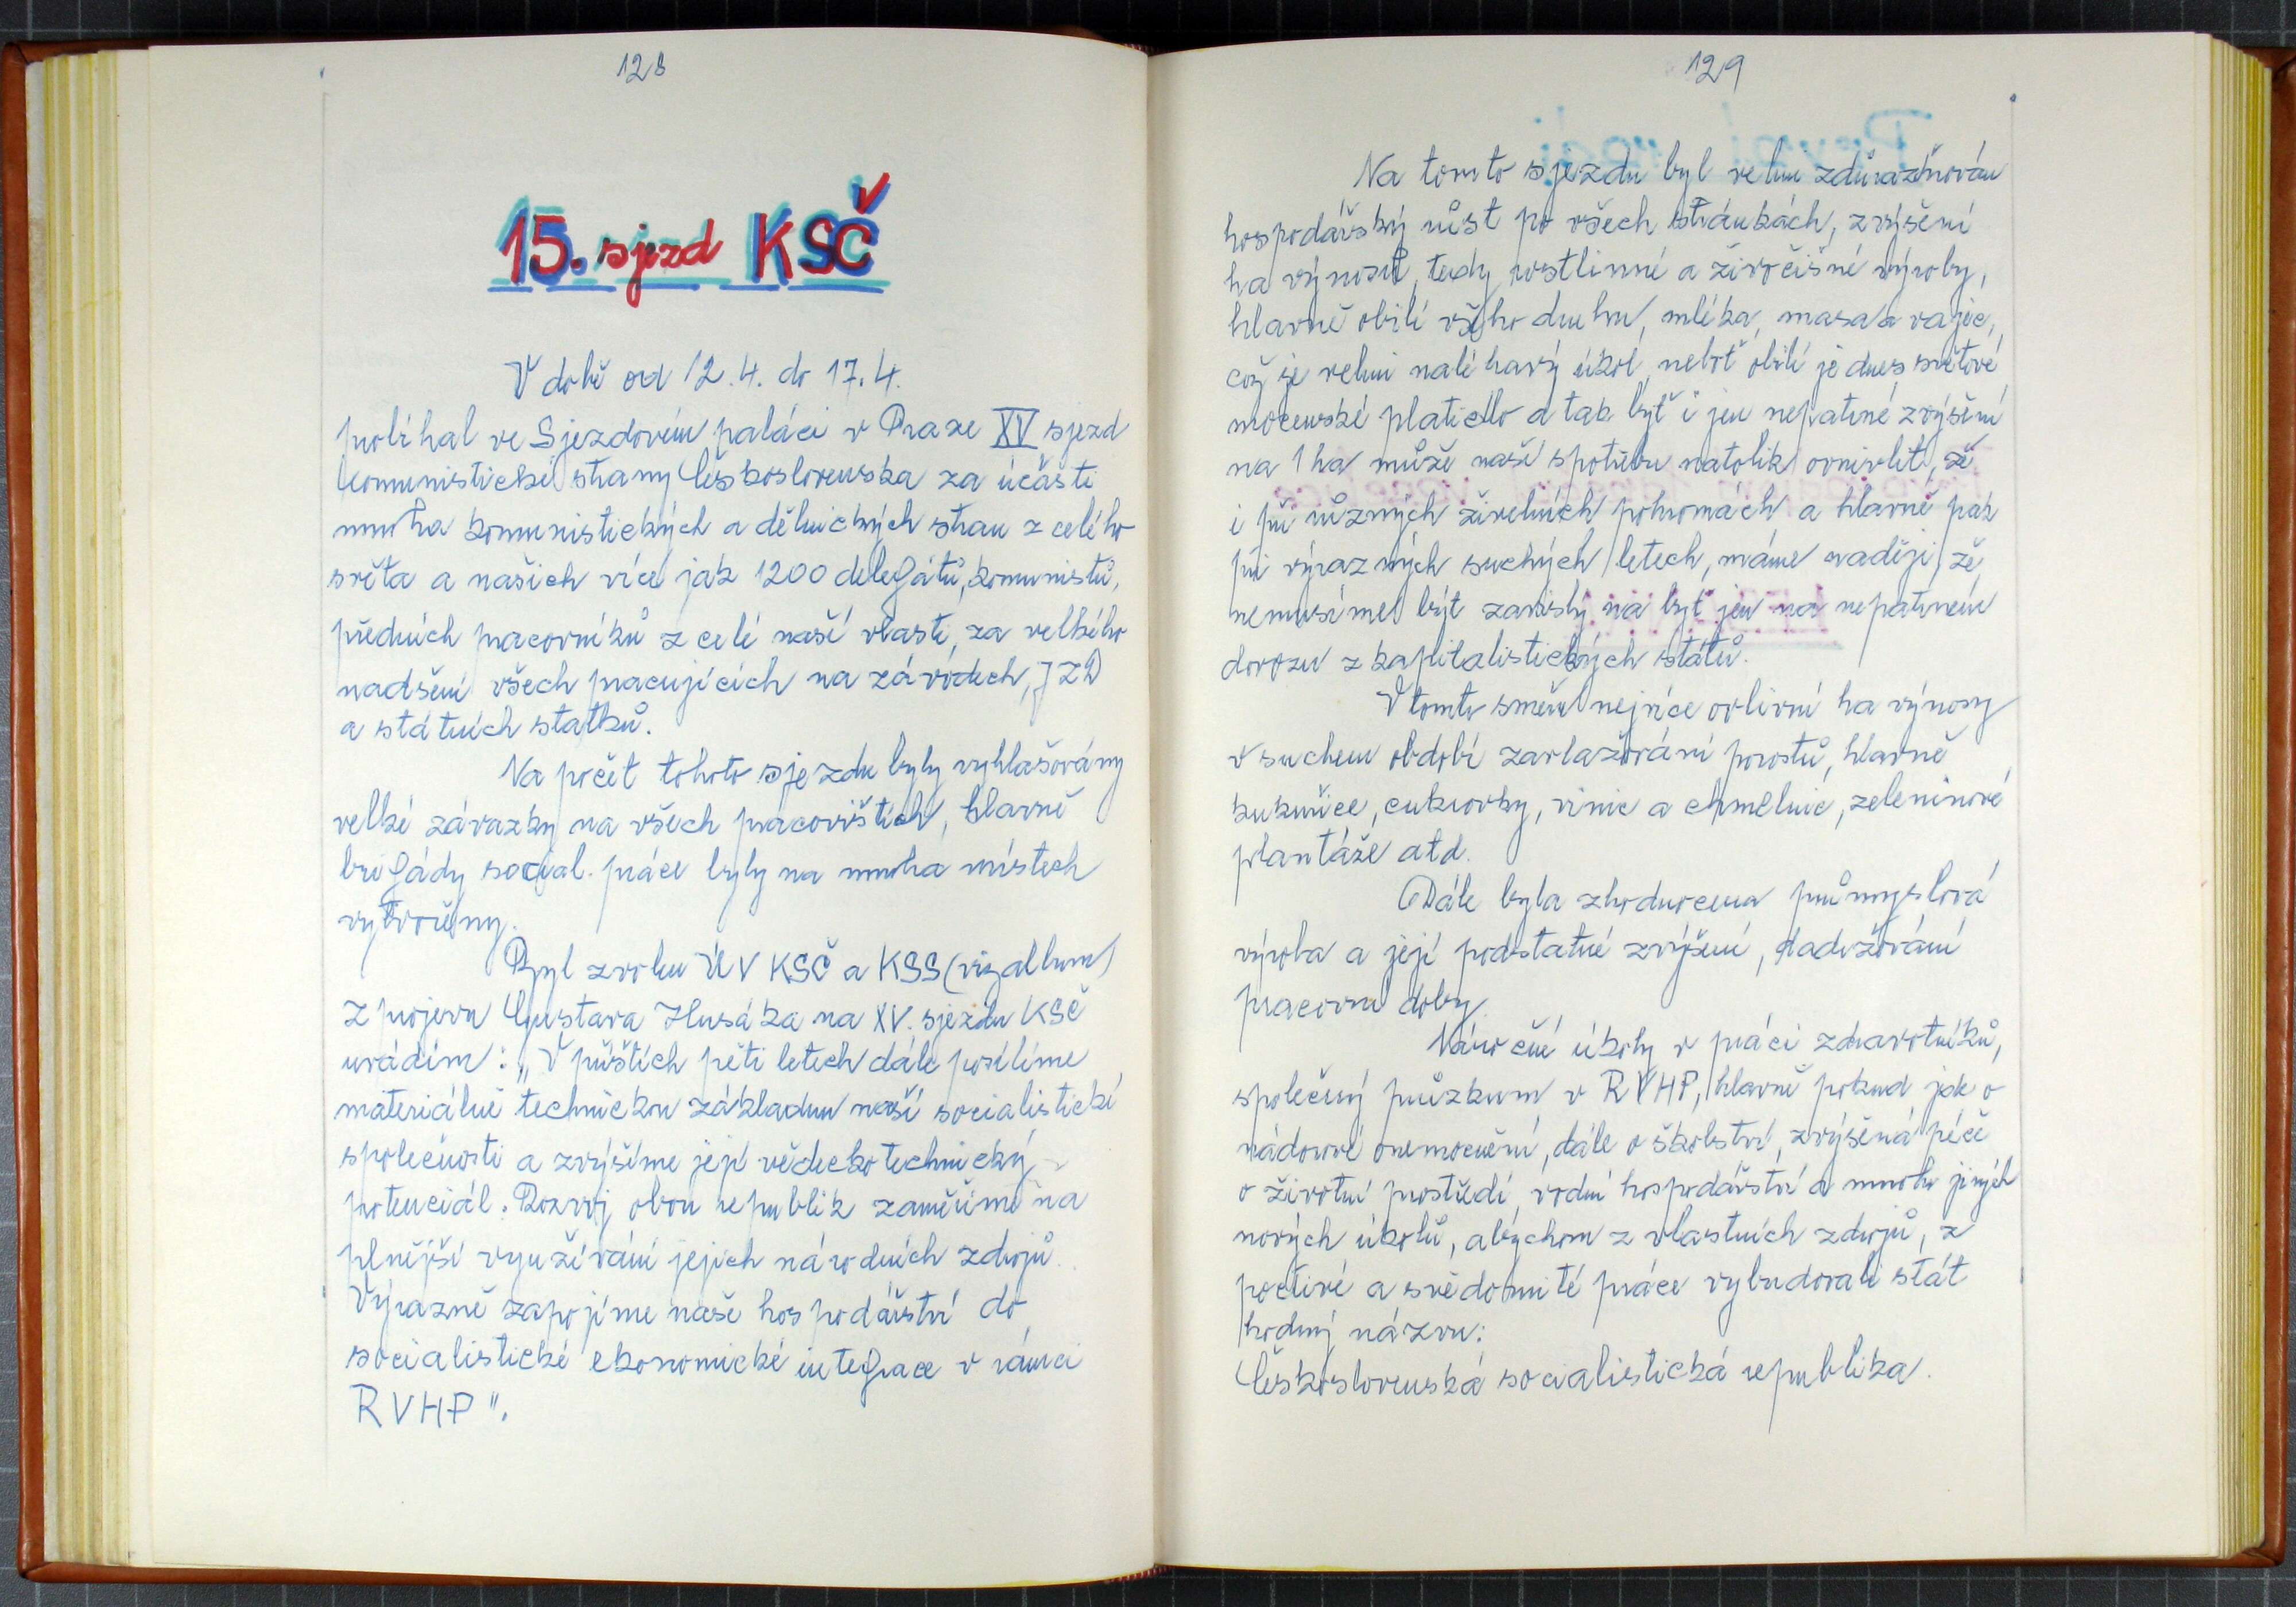 128
15. sjezd KSČ
V době od 12.4. do 17.4.
probíhal ve Sjezdovém paláci v Praze XV sjezd
komunistické strany Československa za účasti
mnoha komunistických a dělnických stran z celého
světa a našich více jak 1200 delegátů, komunistů,
předních pracovníků z celé naší vlasti, za velkého
nadšení všech pracujících na závodech, JZD
a státních statků.
Na počet tohoto sjezdu byly vyhlašovány
velké závazky na všech pracovištích, hlavně
brigády social. práce byly na mnoha místech
vytvořeny.
Byl zvolen ÚV KSČ a KSS (viz album)
Z projevu Gustava Husáka na XV. sjezdu KSČ
uvádím: „V příštích pěti letech dále posílíme
materiálně technickou základnu naší socialistické
společnosti a zvýšíme její vědeckotechnický
potenciál. Rozvoj obou republik zaměříme na
plnější využívání jejich národních zdrojů.
Výrazně zapojíme naše hospodářství do
socialistické ekonomické integrace v rámci
RVHP".
129
Na tomto sjezdu byl velmi zdůrazňován
hospodářský růst po všech stránkách, zvýšení
ha výnosů, tedy rostlinné a živočišné výroby,
hlavně obilí všeho druhu, mléka, masa a vajec,
což je velmi naléhavý úkol, neboť obilí je dnes světové
mocenské platidlo a tak byť i jen nepatrné zvýšení
na 1 ha může naší spotřebu natolik ovnivlit, že
i při různých živelních pohromách a hlavně pak
při výrazných suchých letech, máme naději, že
nemusíme být závislý na byť jen na nepatrném
dovozu z kapitalistických států.
V tomto směru nejvíce ovlivní ha výnosy
v suchem období zavlažování porostů, hlavně
kukuřice, cukrovky, vinic a chmelnic, zeleninové
plantáže atd.
Dále byla zhodnocena průmyslová
výroba a její podstatné zvýšení, dadržování
pracovní doby.
Náročné úkoly v práci zdravotníků,
společný průzkum v RVHP, hlavně pokud jde o
nádorové onemocnění, dále o školství, zvýšená péče
o životní prostředí, vodní hospodářství a mnoho jiných
nových úkolů, abychom z vlastních zdrojů, z
poctivé a svědomité práce vybudovali stát
hodný názvu:
Československá socialistická republika.